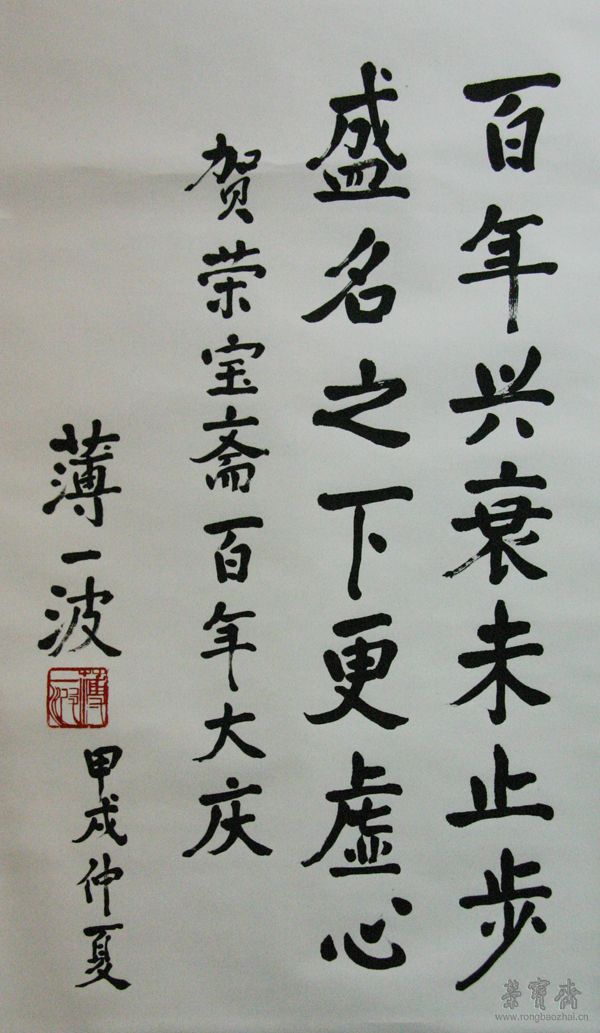 百年兴衰未止步
盛名之下更虚心
贺荣宝斋百年大庆
薄一波
薄一波
甲戌仲夏
荣宝斋
www.rongbaozhai.cn